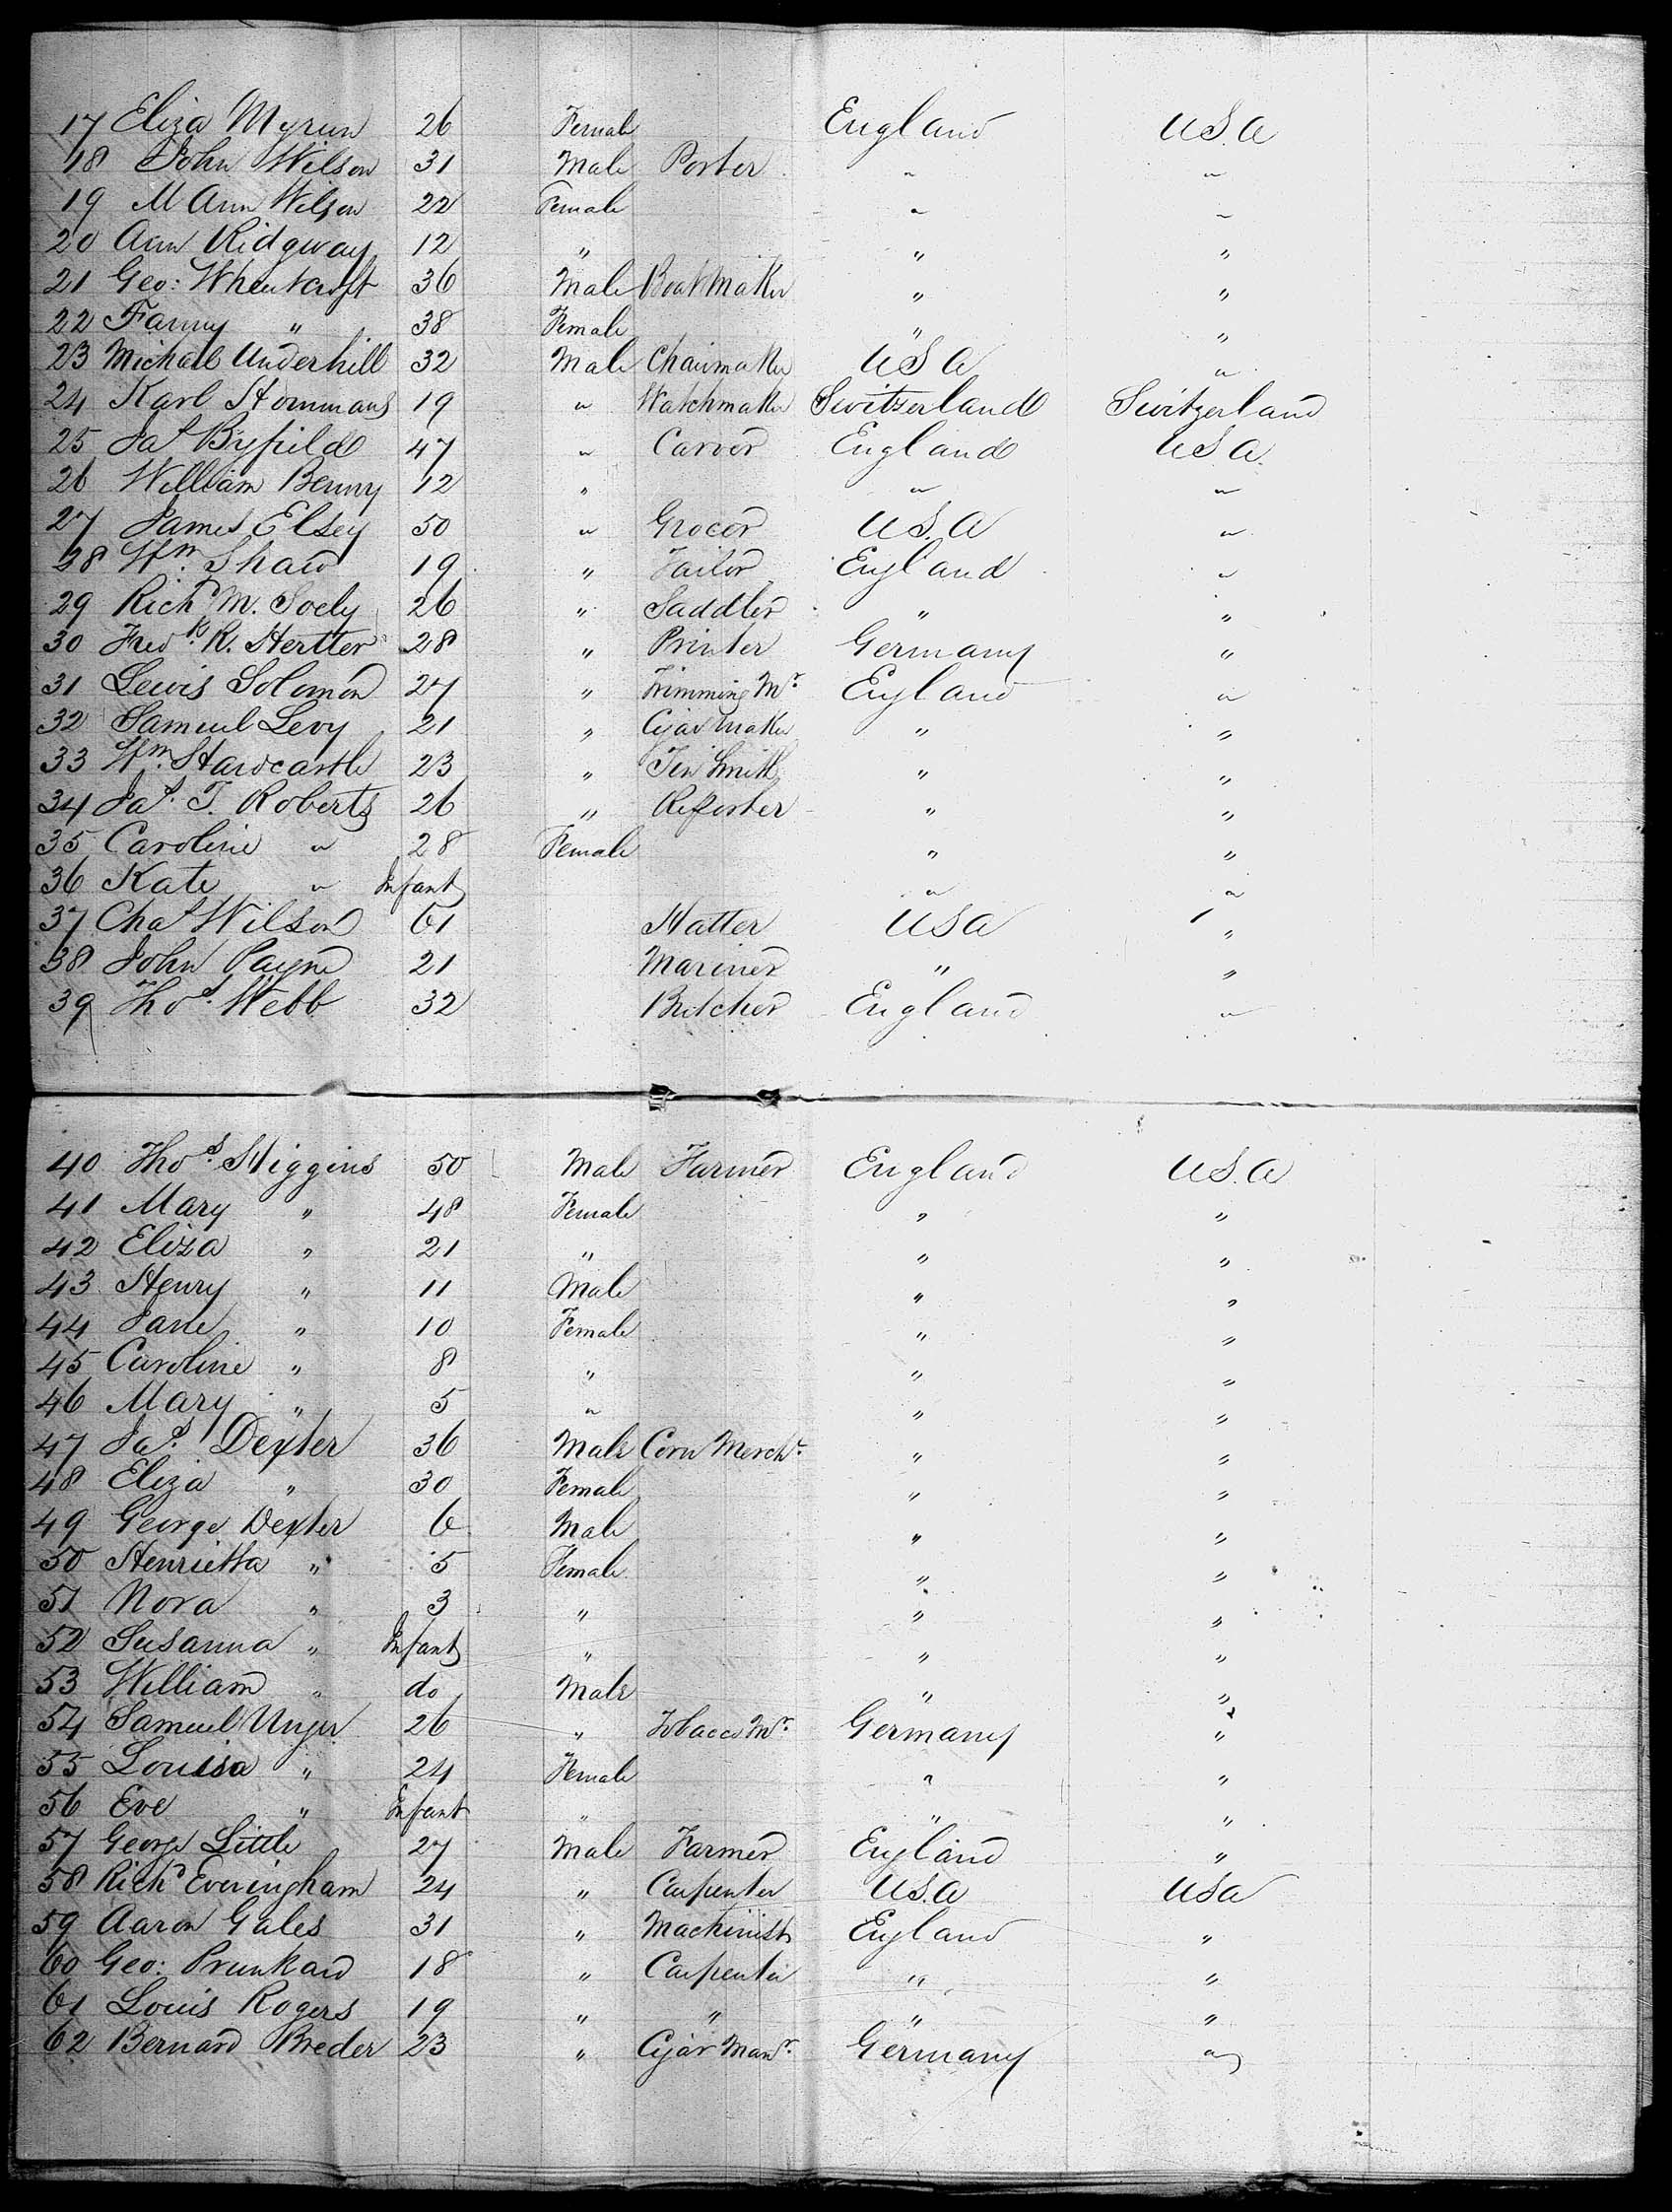 17 Eliza Myrun 26 Female England U.S.A
18 John Wilson 31 Male Porter " "
19 M Ann Wilson 22 Female " "
20 Ann Ridgway 12 " " "
21 Geo: Wheatcroft 36 Male Bootmaker " "
22 Fanny " 38 Female " "
23 Michael Underhill 32 Male Chairmaker U S A "
24 Karl 19 " Watchmaker Switzerland Switzerland
25 Jas Byfield 47 " Carver England U S A
26 William Benny 12 " " "
27 James Elsey 50 " Grocer U.S.A "
28 Wm. Shaw 19 " Tailor England "
29 Richd M. Soely 26 " Saddler " "
30 Fredk. R. Hertter 28 " Printer Germany "
31 Lewis Solomon 27 " Trimming Mr. England "
32 Samuel Levy 21 " Cigar Maker " "
33 Wm. Hawcastle 23 " Tin Smith " "
34 Jas. T. Roberts 26 " Reporter " "
35 Caroline " 28 Female " "
36 Kate " Infant " "
37 Chas Wilson 61 Hatter U S A "
38 John Payne 21 Mariner " "
39 Thos. Webb 32 Butcher England "
40 Thos. Higgins 50 Male Farmer England U.S.A
41 Mary " 48 Female " "
42 Eliza " 21 " " "
43 Henry " 11 Male " "
44 Jane " 10 Female " "
45 Caroline " 8 " " "
46 Mary " 5 " " "
47 Jas. Dexter 36 Male Corn Mercht. " "
48 Eliza " 30 Female " "
49 George Dexter 6 Male " "
50 Henrietta " 5 Female " "
51 Nora " 3 " " "
52 Susanna " Infant " " "
53 William " do Male " "
54 Samuel Unger 26 " Tobacco Mr. Germany "
55 Louisa " 24 Female " "
56 Eve " Infant " " "
57 George Little 27 Male Farmer England "
58 Richd Everingham 24 " Carpenter U.S.A U S A
59 Aaron Gales 31 " Machinist England "
60 Geo: Prunkard 18 " Carpenter " "
61 Louis Rogers 19 " " " "
62 Bernard Breder 23 " Cigar Manr. Germany "